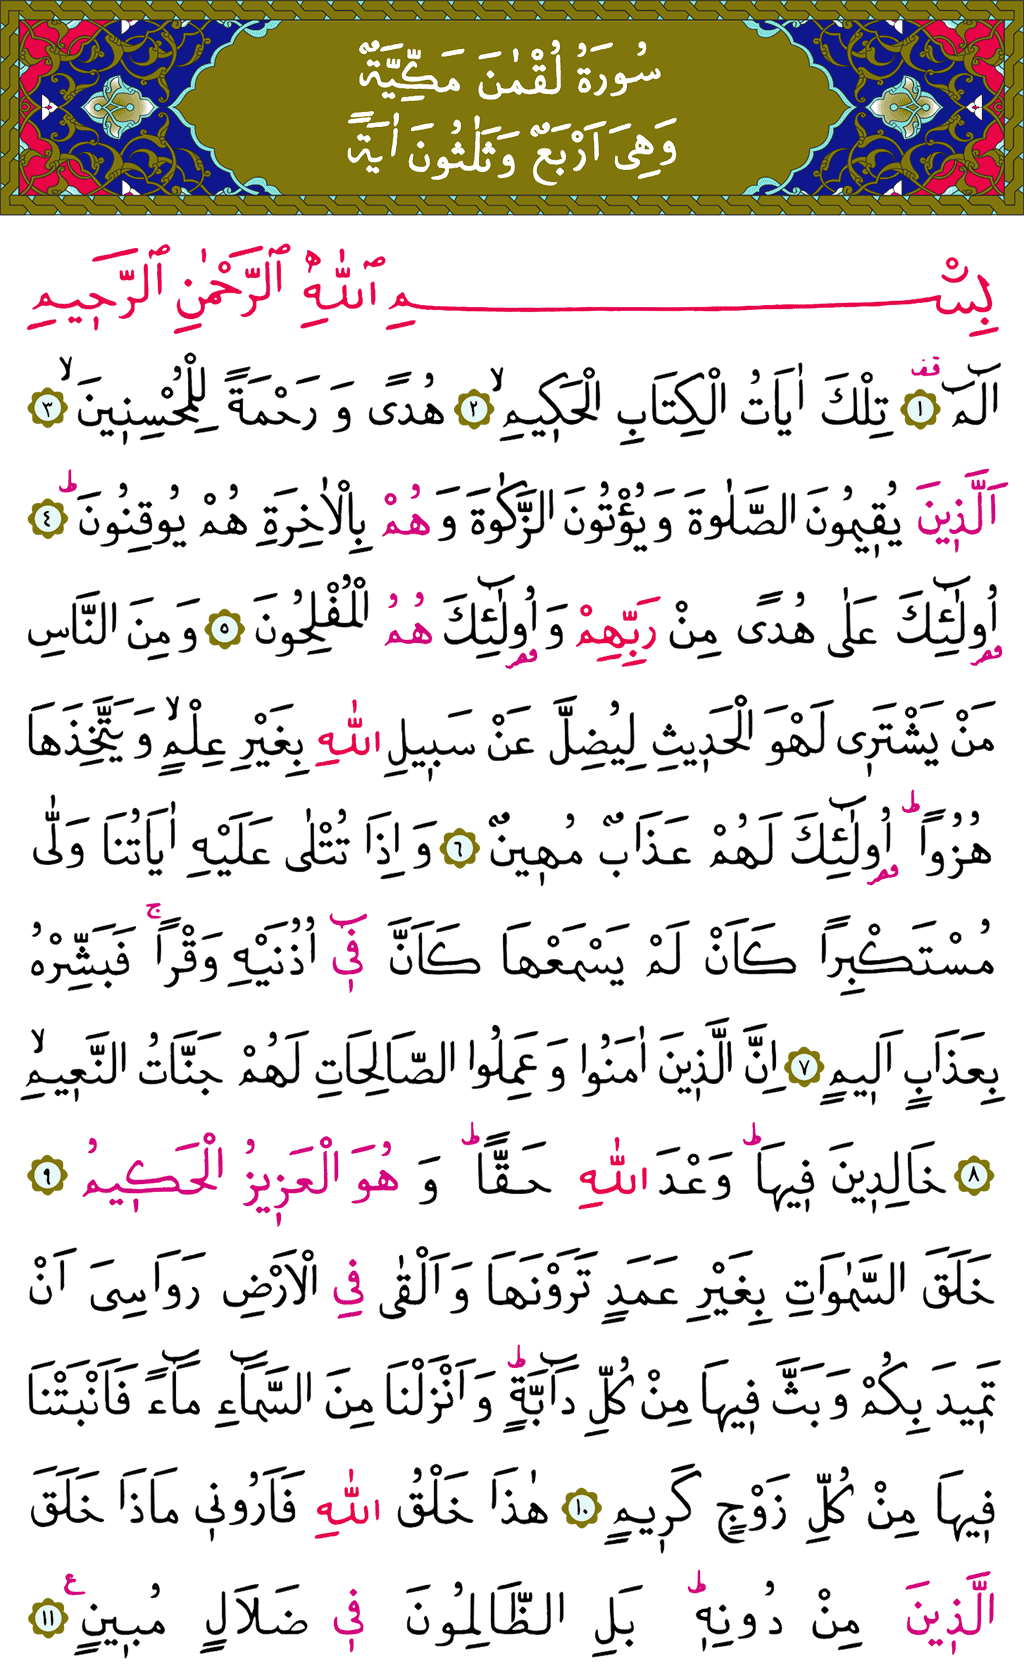 سُورَةُ لُقْمٰنَ مَكِّيَّةٌ
وَهِيَ اَرْبَعٌ وَثَلٰثُونَ اٰيَةً
بِسْمِ ٱللّٰهِ ٱلرَّحْمٰنِ ٱلرَّحٖيمِ
الٓمٓ ۗ ﴿١﴾ تِلْكَ اٰيَاتُ الْكِتَابِ الْحَكٖيمِۙ ﴿٢﴾ هُدًى وَ رَحْمَةً لِلْمُحْسِنٖينَۙ ﴿٣﴾
اَلَّذٖينَ يُقٖيمُونَ الصَّلٰوةَ وَيُؤْتُونَ الزَّكٰوةَ وَ هُمْ بِالْاٰخِرَةِ هُمْ يُوقِنُونَؕ ﴿٤﴾
اُو۬لٰٓئِكَ عَلٰى هُدًى مِنْ رَبِّهِمْ وَ اُو۬لٰٓئِكَ هُمُ الْمُفْلِحُونَ ﴿٥﴾ وَ مِنَ النَّاسِ
مَنْ يَشْتَرٖى لَهْوَ الْحَدٖيثِ لِيُضِلَّ عَنْ سَبٖيلِ اللّٰهِ بِغَيْرِ عِلْمٍۙ وَ يَتَّخِذَهَا
هُزُوًاؕ اُو۬لٰٓئِكَ لَهُمْ عَذَابٌ مُهٖينٌ ﴿٦﴾ وَ اِذَا تُتْلٰى عَلَيْهِ اٰيَاتُنَا وَلّٰى
مُسْتَكْبِرًا كَاَنْ لَمْ يَسْمَعْهَا كَاَنَّ فٖٓى اُذُنَيْهِ وَقْرًاۚ فَبَشِّرْهُ
بِعَذَابٍ اَلٖيمٍ ﴿٧﴾ اِنَّ الَّذٖينَ اٰمَنُوا وَ عَمِلُوا الصَّالِحَاتِ لَهُمْ جَنَّاتُ النَّعٖيمِۙ
﴿٨﴾ خَالِدٖينَ فٖيهَاؕ وَعْدَ اللّٰهِ حَقًّاؕ وَ هُوَ الْعَزٖيزُ الْحَكٖيمُ ﴿٩﴾
خَلَقَ السَّمٰوَاتِ بِغَيْرِ عَمَدٍ تَرَوْنَهَا وَ اَلْقٰى فِى الْاَرْضِ رَوَاسِىَ اَنْ
تَمٖيدَ بِكُمْ وَ بَثَّ فٖيهَا مِنْ كُلِّ دَٓابَّةٍؕ وَ اَنْزَلْنَا مِنَ السَّمَٓاءِ مَٓاءً فَاَنْبَتْنَا
فٖيهَا مِنْ كُلِّ زَوْجٍ كَرٖيمٍ ﴿١٠﴾ هٰذَا خَلْقُ اللّٰهِ فَاَرُونٖى مَاذَا خَلَقَ
الَّذٖينَ مِنْ دُونِهٖؕ بَلِ الظَّالِمُونَ فٖى ضَلَالٍ مُبٖينٍ ع ﴿١١﴾